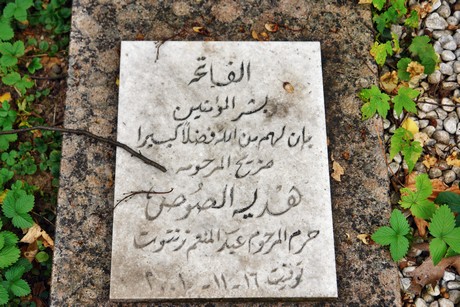 الفاتحة
بشر المؤمنين
بان لهم من الله فضلا كبيرا
ضريح المرحومه
هديه الصوص
حرم المرحوم عبد المنعم زنتوت
توفيت ١٦-١١-٢٠٠١